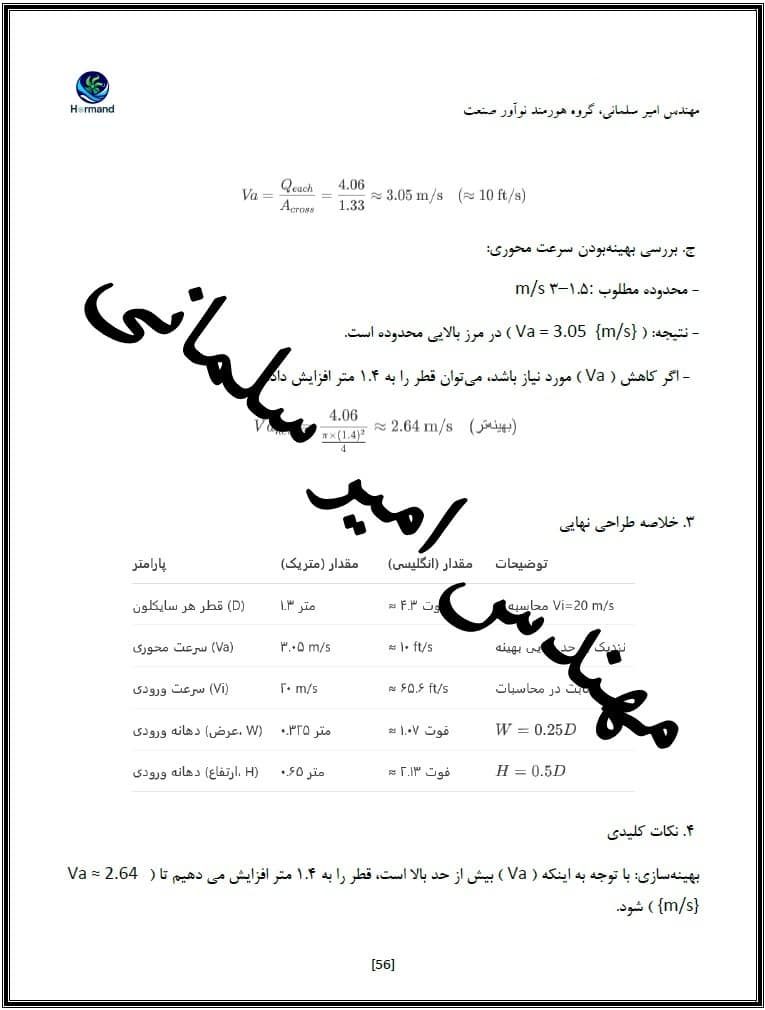 Hormand
مهندس امیر سلمانی، گروه هورمند نوآور صنعت
Va = Q_each / A_cross = 4.06 / 1.33 ≈ 3.05 m/s (≈ 10 ft/s)
ج. بررسی بهینه‌بودن سرعت محوری:
- محدوده مطلوب :۱.۵–۳ m/s
- نتیجه: ( Va = 3.05 {m/s} ) در مرز بالایی محدوده است.
- اگر کاهش ( Va ) مورد نیاز باشد، می‌توان قطر را به ۱.۴ متر افزایش داد
4.06 / (π×(1.4)² / 4) ≈ 2.64 m/s (بهینه‌تر)
۳. خلاصه طراحی نهایی
پارامتر مقدار (متریک) مقدار (انگلیسی) توضیحات
قطر هر سایکلون (D) ۱.۳ متر ≈ ۴.۳ محاسبه Vi=20 m/s
سرعت محوری (Va) ۳.۰۵ m/s ≈ ۱۰ ft/s نزدیک بهینه
سرعت ورودی (Vi) ۲۰ m/s ≈ ۶۵.۶ ft/s در محاسبات
دهانه ورودی (عرض، W) ۰.۳۲۵ متر ≈ ۱.۰۷ فوت W = 0.25D
دهانه ورودی (ارتفاع، H) ۰.۶۵ متر ≈ ۲.۱۳ فوت H = 0.5D
۴. نکات کلیدی
بهینه‌سازی: با توجه به اینکه ( Va ) بیش از حد بالا است، قطر را به ۱.۴ متر افزایش می دهیم تا ( Va ≈ 2.64
{m/s} ) شود.
[56]
مهندس امیر سلمانی